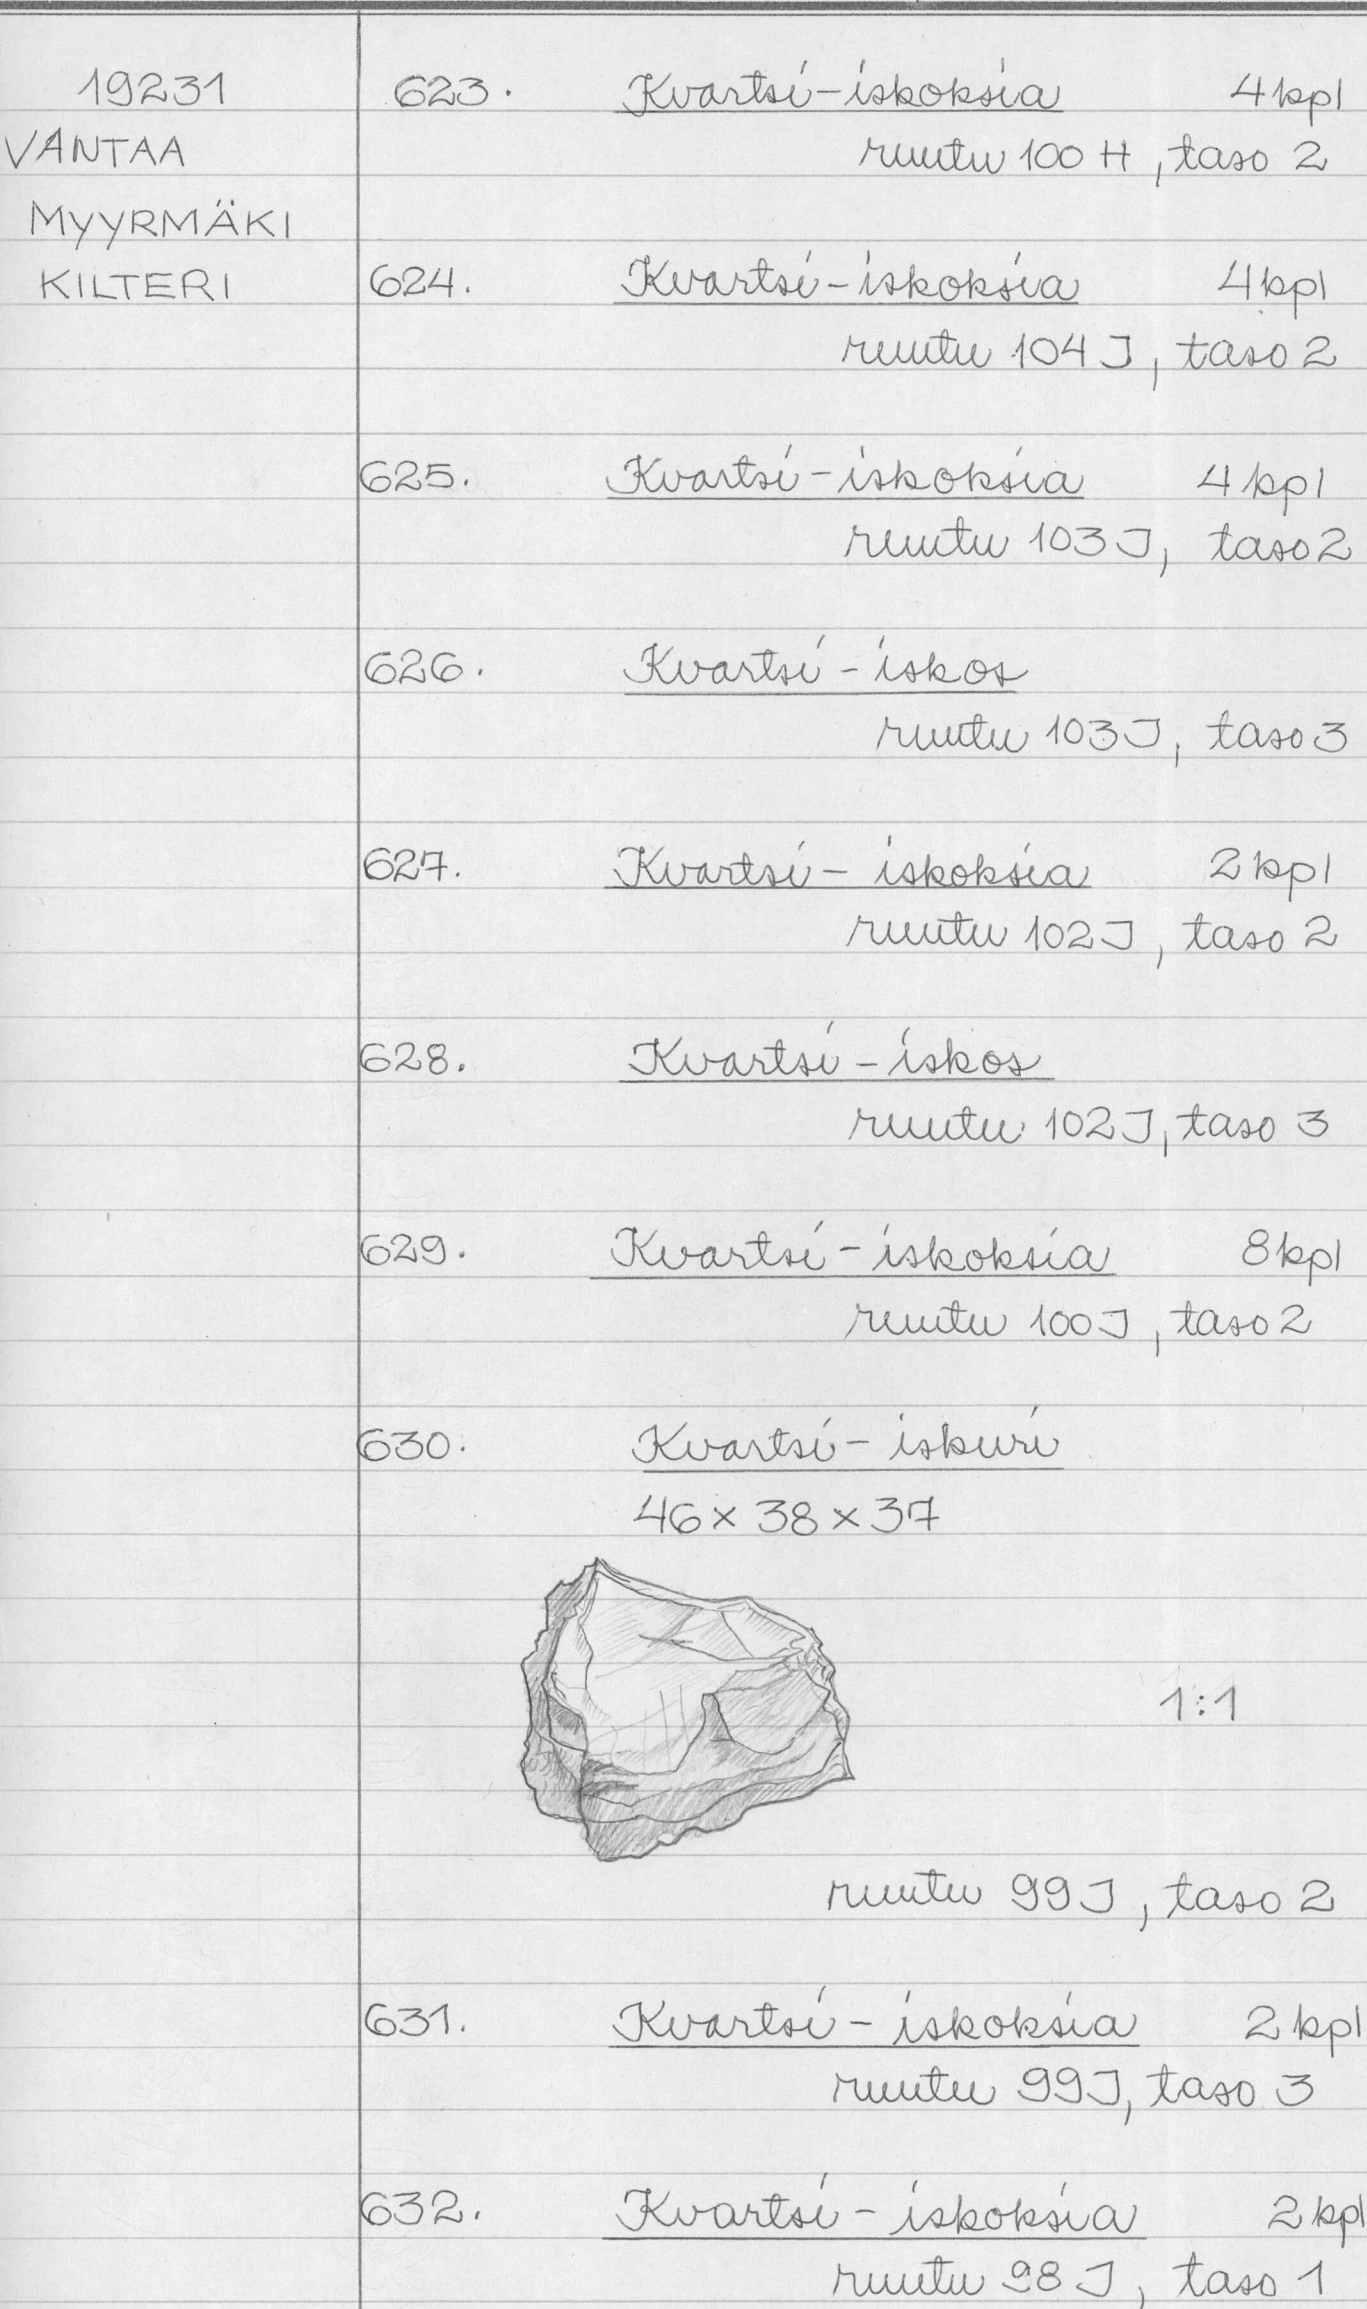 19231
VANTAA
MYYRMÄKI
KILTERI
623. Kvartsi-iskoksia 4 kpl
ruutu 100 H, taso 2
624. Kvartsi-iskoksia 4 kpl
ruutu 104 J, taso 2
625. Kvartsi-iskoksia 4 kpl
ruutu 103 J, taso 2
626. Kvartsi-iskos
ruutu 103 J, taso 3
627. Kvartsi-iskoksia 2 kpl
ruutu 102 J, taso 2
628. Kvartsi-iskos
ruutu 102 J, taso 3
629. Kvartsi-iskoksia 8 kpl
ruutu 100 J, taso 2
630. Kvartsi-iskuri
46 x 38 x 37
1:1
ruutu 99 J, taso 2
631. Kvartsi-iskoksia 2 kpl
ruutu 99 J, taso 3
632. Kvartsi-iskoksia 2 kpl
ruutu 98 J, taso 1